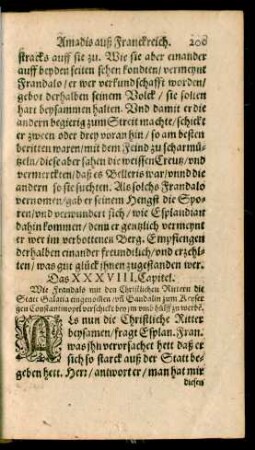 Amadis auß Franckreich. 200
stracks auff sie zu. Wie sie aber einander
auff beyden seiten sehen kondten/ vermeynt
Frandalo/ er wer verkundschafft worden/
gebot derhalben seinem Volck/ sie solten
hart beysammen halten. Vnd damit er die
andern begierig zum Streit machte/ schickt
er zween oder drey voran hin/ so am besten
beritten waren/ mit dem Feind zu scharmü-
tzeln/ diese aber sahen die weissen Creutz/ vnd
vermerckten/ daß es Belleris war/ vnnd die
andern so sie suchten. Als solchs Frandalo
vernomen/ gab er seinem Hengst die Spo-
ren/ vnd verwundert sich/ wie Esplandian
dahin kommen/ denn er gentzlich vermeynt
er wer im verbottenen Berg. Empfiengen
derhalben einander freundtlich/ vnd erzehl-
ten/ was gut glück ihnen zugestanden wer.
Das XXXVIII. Capitel.
Wie Frandalo mit den Christlichen Rittern die
Statt Galatia eingenommen/ vñ Gandalin zum Keyser
gen Constantinopel verschickt/ bey jm vmb hülff zu werbē.
Als nun die Christliche Ritter
beysamen/ fragt Esplan. Fran.
was jhn verorsachet hett daß er
sich so starck auß der Statt be-
geben hett. Herr/ antwort er/ man hat mir
diesen